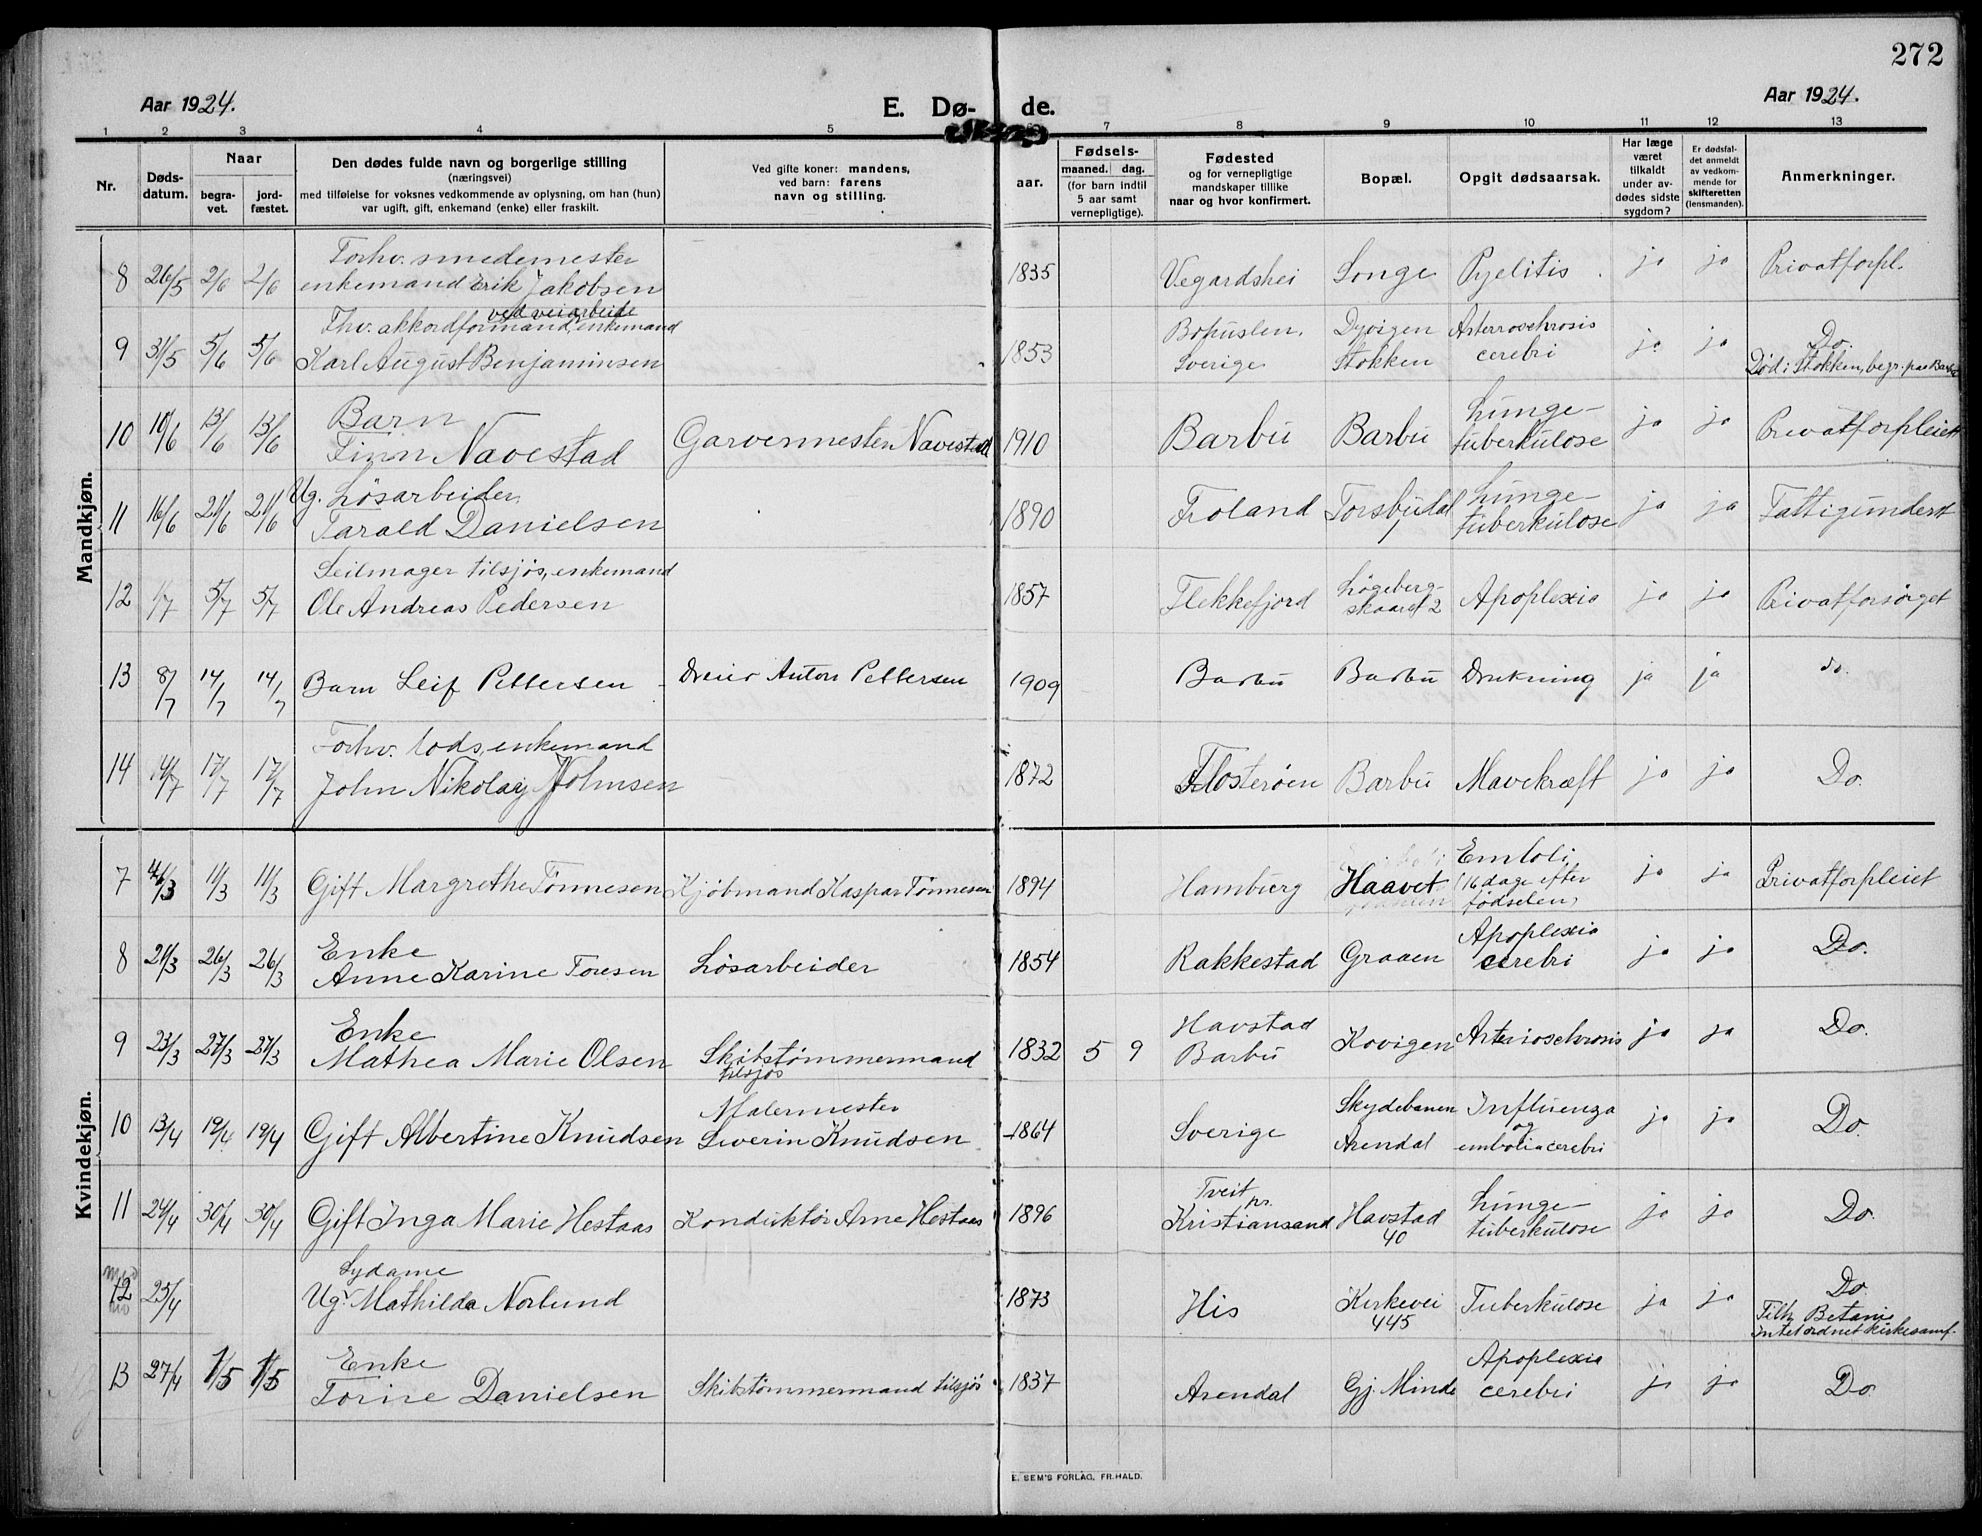 272
Aar 1924.
E. Dø- de.
Aar 1924.
1 2 3 4 5 7 8 9 10 11 12 13
Nr.
Døds-
datum.
Naar
begra-
vet.
jord-
fæstet.
Den dødes fulde navn og borgerlige stilling
(næringsvei)
med tilføielse for voksnes vedkommende av oplysning, om han (hun)
var ugift, gift, enkemand (enke) eller fraskilt.
Ved gifte koner: mandens,
ved barn: farens
navn og stilling.
Fødsels-
aar.
maaned. dag.
(for barn indtil
5 aar samt
vernepligtige).
Fødested
og for vernepligtige
mandskaper tillike
naar og hvor konfirmert.
Bopæl.
Opgit dødsaarsak.
Har læge
været
tilkaldt
under av-
dødes sidste
sygdom?
Er dødsfal-
det anmeldt
av vedkom-
mende for
skifteretten
(lensmanden).
Anmerkninger.
Mandkjøn.
Forhv. smedemester
8 26/5 2/6 2/6 enkemand Erik Jakobsen 1835 Vegardshei Songe Pyelitis ja ja Privatforpl.
ved veiarbeide
Fhv. akkordformand, enkemand Bohuslen, Dyvigen Arterroschrosis
9 31/5 5/6 5/6 Karl August Benjaminsen 1853 Sverige Stokken cerebri ja ja Do.
Død i Stokken, begr. paa Barbu
Barn Lunge-
10 10/6 13/6 13/6 Finn Navestad Garvermester Navestad 1910 Barbu Barbu tuberkulose ja ja Privatforpleiet
Ug. Løsarbeider Lunge-
11 16/6 21/6 21/6 Tarald Danielsen 1890 Froland Torsbudal tuberkulose ja ja Fattigunderst
Seilmager tilsjøs, enkemand Løgeberg-
12 1/7 5/7 5/7 Ole Andreas Pedersen 1857 Flekkefjord skaaret 2 Apoplexia ja ja Privatforsørget
13 8/7 14/7 14/7 Barn Leif Pettersen Dreier Anton Pettersen 1909 Barbu Barbu Drukning ja ja do.
Forhv. lods, enkemand
14 14/7 17/7 17/7 John Nikolay Johnsen 1872 Flosterøen Barbu Mavekræft ja ja Do.
Kvindekjøn.
Emboli
7 4/3 11/3 11/3 Gift Margrethe Tønnesen Kjøbmand Kaspar Tønnesen 1894 Hamburg Haavet (16 dage efter ja ja Privatforpleiet
fødselen)
Enke Apoplexia
8 21/3 26/3 26/3 Anne Karine Toresen Løsarbeider 1854 Rakkestad Graaen cerebri ja ja Do.
Enke Havstad
9 23/3 27/3 27/3 Mathea Marie Olsen Skibstømmermand 1832 5 9 Barbu Kovigen Arterioschrosis ja ja Do.
tilsjøs
Malermester Skydebanen Influenza
10 13/4 19/4 19/4 Gift Albertine Knudsen Severin Knudsen 1864 Sverige Arendal og ja ja Do.
embolia cerebri
Tveit pr. Lunge-
11 24/4 30/4 30/4 Gift Inga Marie Hestaas Konduktør Arne Hestaas 1896 Kristiansand Havstad tuberkulose ja ja Do.
40
Sydame
12 25/4 Ug. Mathilda Norlund 1873 His Kirkevei Tuberkulose ja ja Do.
445 Tilh. Betania
intet ordnet kirkesamf.
Enke Apoplexia
13 27/4 1/5 1/5 Torine Danielsen Skibstømmermand tilsjøs 1837 Arendal Gj. Minde cerebri ja ja Do.
E. SEM'S FORLAG, FR.HALD.